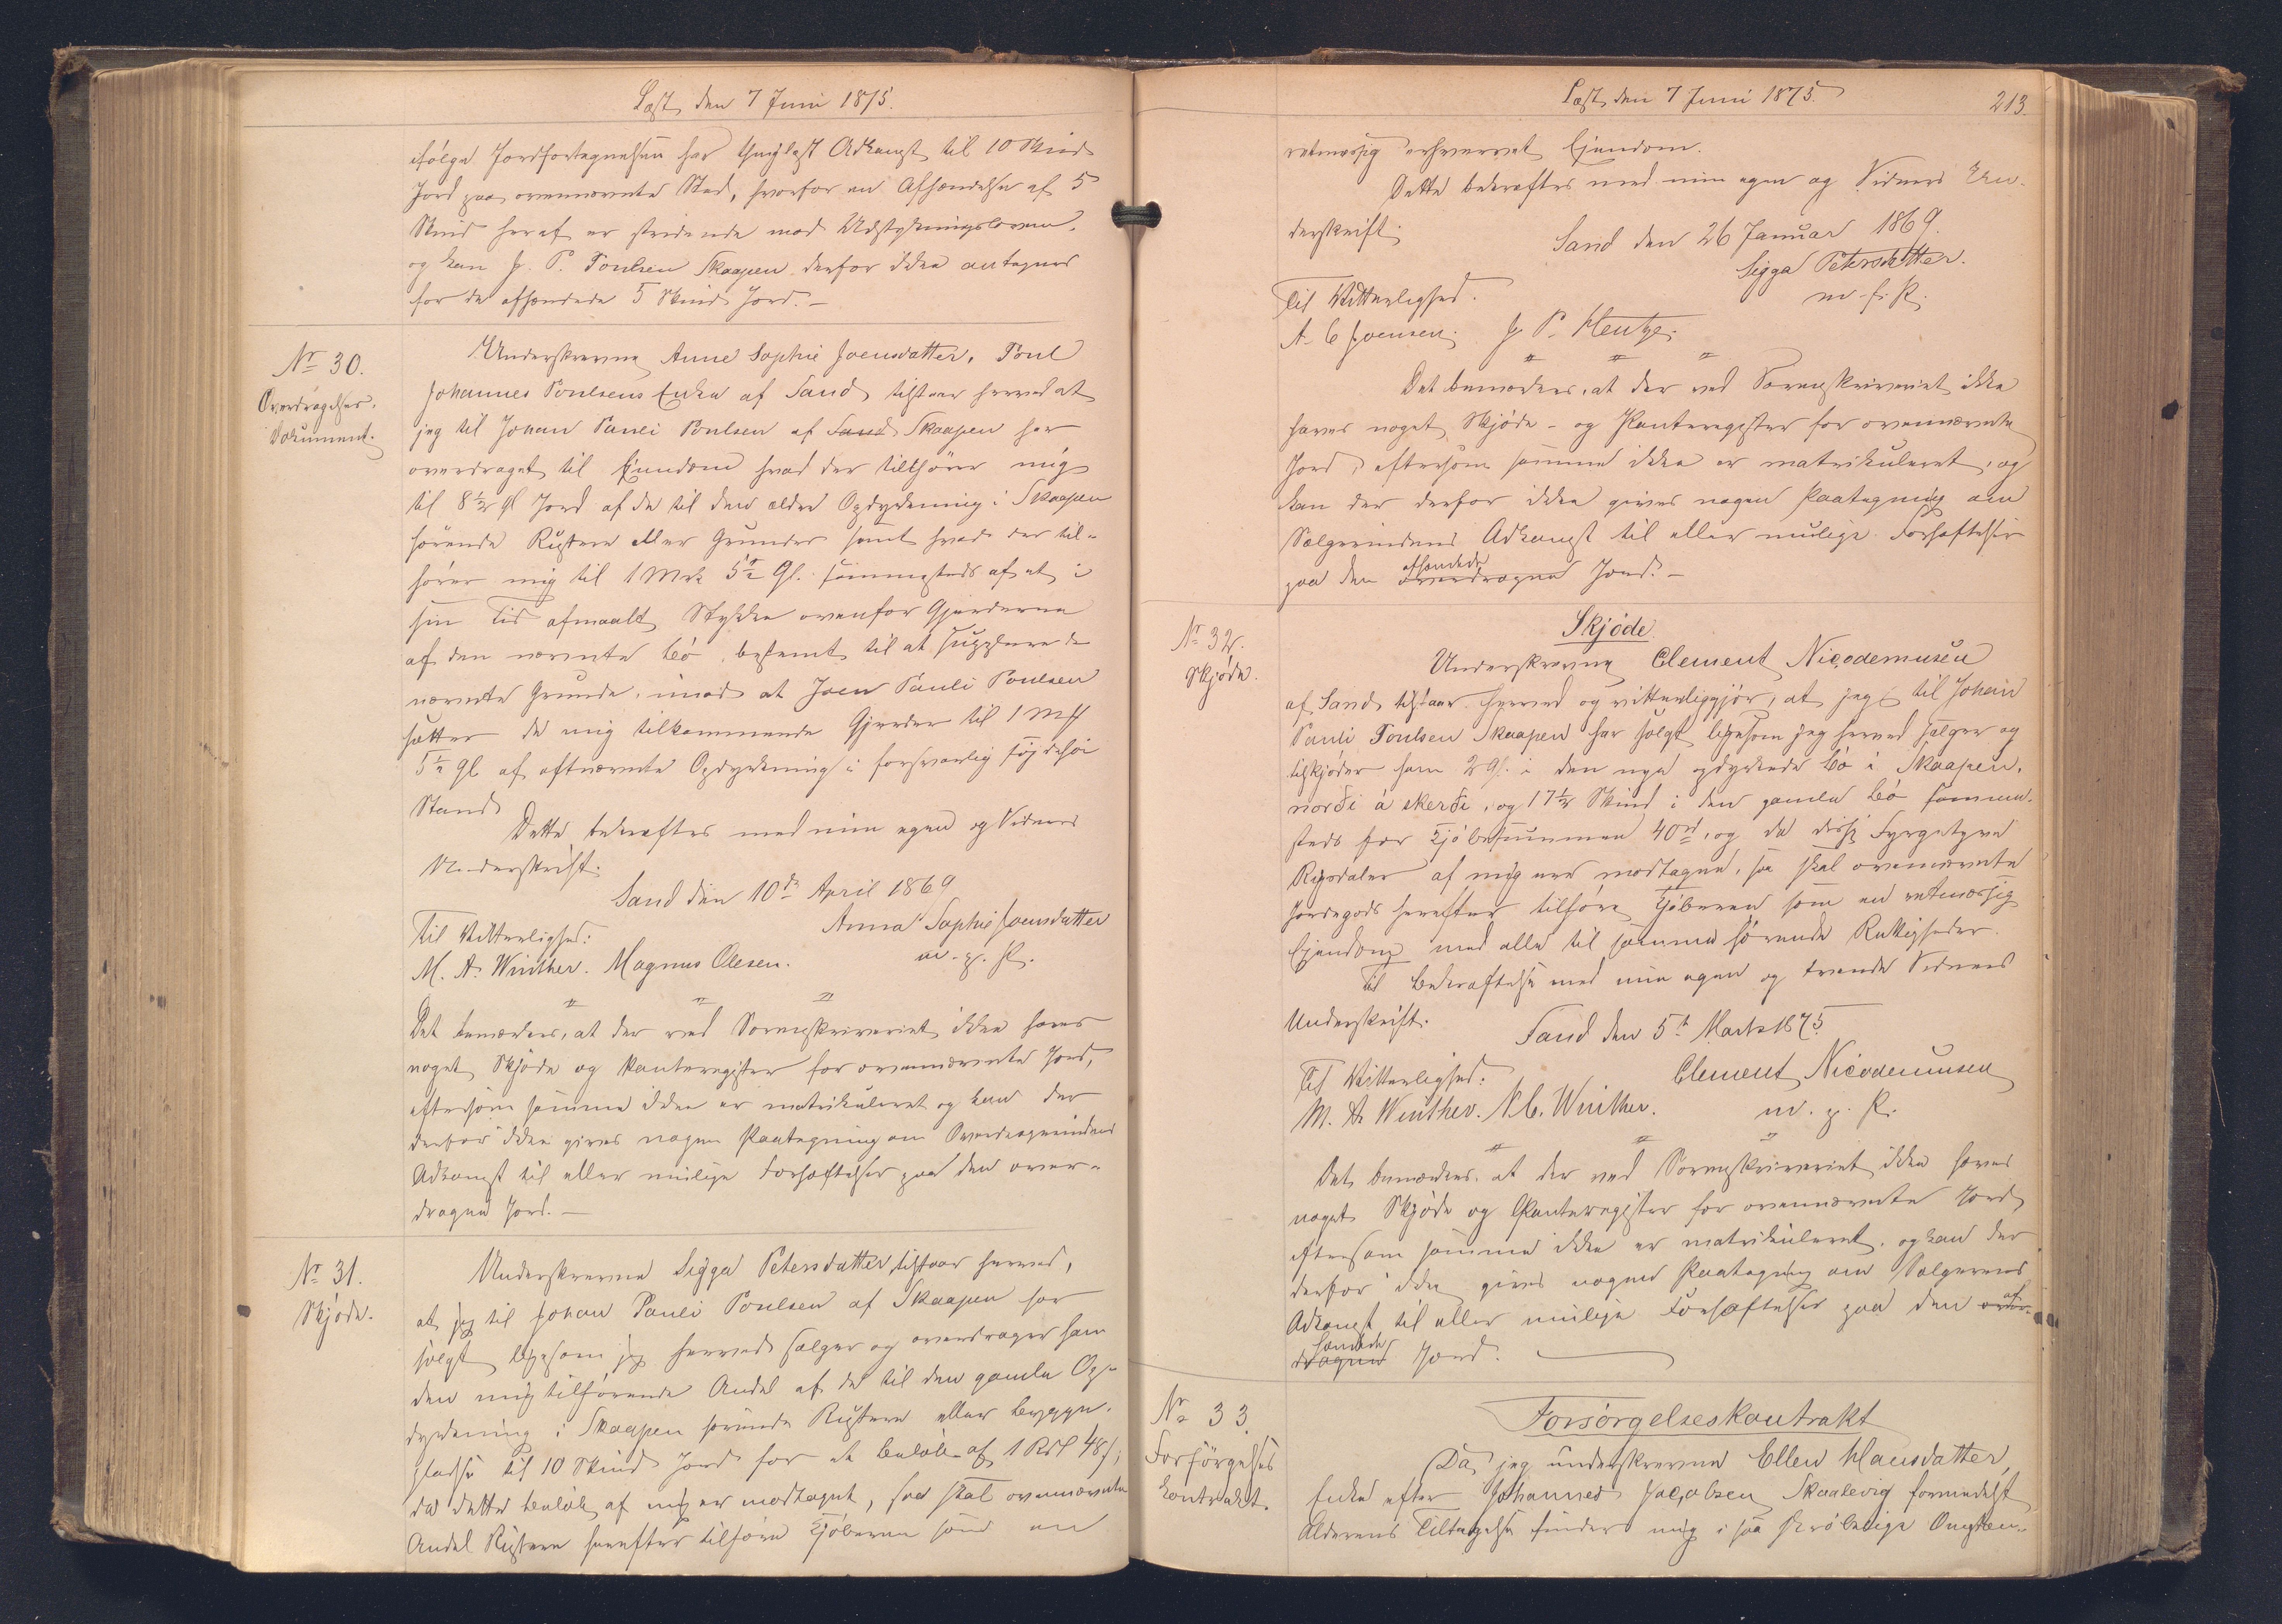 Læst den 7 Juni 1875.
ifølge Jordfortegnelsen har thinglæst Adkomst til 10 Skind
Jord paa ovennævnte Sted, hvorfor en Afhændelse af 5
Skind heraf er stridende mod Udstykningsloven,
og kan J. P. Poulsen Skaapen derfor ikke antages
for de afhændede 5 Skind Jord.—
Nr 30.
Overdragelses-
Dokument.
Underskrevne Anne Sophie Joensdatter, Poul
Johannes Poulsens Enke af Sand tilstaar herved at
jeg til Johan Pauli Poulsen af Sand Skaapen har
overdraget til Eiendom hvad der tilhører mig
til 8½ Gl Jord af de til den ældre Opdyrkning i Skaapen
hørende Rustere eller Grunder samt hvad der til-
hører mig til 1 Mrk 5½ Gl. sammesteds af et i
sin Tid afmaalt Stykke ovenfor Gjærderne
af den nævnte bø, bestemt til at supplere de
nævnte Grunde, imod at Joen Pauli Poulsen
sætter de mig tilkommende Gjærder til 1 Mk
5½ Gl af oftnævnte Opdyrkning i forsvarlig
Stand
Dette bekræftes med min egen og Vidners
Underskrift.
Sand den 10de April 1869
Anna Sophie Joensdatter
m. p. P.
Til Vitterlighed:
M. A. Winther. Magnus Olesen.
Det bemærkes, at der ved Sorenskriveriet ikke haves
noget Skjøde og Panteregister for ovennævnte Jord,
eftersom samme ikke er matrikuleret og kan der
derfor ikke gives nogen Paategning om Overdragerindens
Adkomst til eller mulige Forhæftelser paa den over-
dragne Jord.—
Nr 31.
Skjøde.
Underskrevne Sigga Petersdatter tilstaar herved,
at jeg til Johan Pauli Poulsen af Skaapen har
solgt ligesom jeg herved sælger og overdrager ham
den mig tilhørende Andel af de til den gamle Op-
dyrkning i Skaapen hørende Rustere eller bygge-
pladse til 10 Skind Jord for et beløb af 1 Rdl 48 s;
da dette beløb af mig er modtaget, saa skal ovennævnte
Andel Rustere herefter tilhøre Kjøberen som en
Læst den 7 Juni 1875.
213.
retmæssig erhvervet Ejendom.
Dette bekræftes med min egen og Vidners Un-
derskrift.
Sand den 26 Januar 1869.
Sigga Petersdatter.
m. f. P.
Til Vitterlighed.
A. C Joensen. J. P. Hentze.
Det bemærkes, at der ved Sorenskriveriet ikke
haves noget Skjøde- og Panteregister for ovennævnte
Jord, eftersom samme ikke er matrikuleret, og
kan der derfor ikke gives nogen Paategning om
Sælgerindens Adkomst til eller mulige Forhæftelser
paa den overdragne afhændede Jord.—
Nr 32.
Skjøde.
Skjøde.
Underskrevne Clement Nicodemusen
af Sand tilstaar herved og vitterliggjør, at jeg til Johan
Pauli Poulsen Skaapen har solgt ligesom jeg herved sælger og
tilskjøder ham 2 Gl. i den nye opdyrkede bø i Skaapen,
norði á skerði, og 17½ Skind i den gamle bø samme-
steds for Kjøbesummen 40 rd, og da disse Fyrgetyve
Rigsdaler af mig ere modtagne, saa skal ovennævnte
Jordegods herefter tilhøre Kjøberen som en retmæssig
Ejendom med alle til samme hørende Rettigheder.
Til Bekræftelse med min egen og tvende Vidners
Underskrift.
Sand den 5te Marts 1875.
Clement Nicodemusen
m. p. P.
Til Vitterlighed:
M. A. Winther. N. C. Winther.
Det bemærkes, at der ved Sorenskriveriet ikke haves
noget Skjøde og Panteregister for ovennævnte Jord
eftersom samme ikke er matrikuleret, og kan der
derfor ikke gives nogen Paategning om Sælgerens
Adkomst til eller mulige Forhæftelser paa den over- af-
dragne hændede Jord.
Nr 33.
Forsørgelses
kontrakt.
Forsørgelseskontrakt
Da jeg underskrevne Ellen Hansdatter,
Enke efter Johannes Jacobsen Skaalevig formedelst
Alderens Tiltagelse finder mig i saa skrøbelige Omstæn-